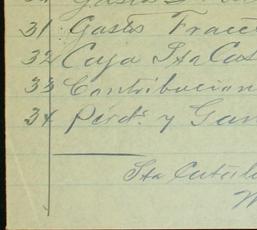 31 Gastos Fracc
32 Caja Sta Cat
33 Contribucion
34 Pérds y Gan
Sta Catal